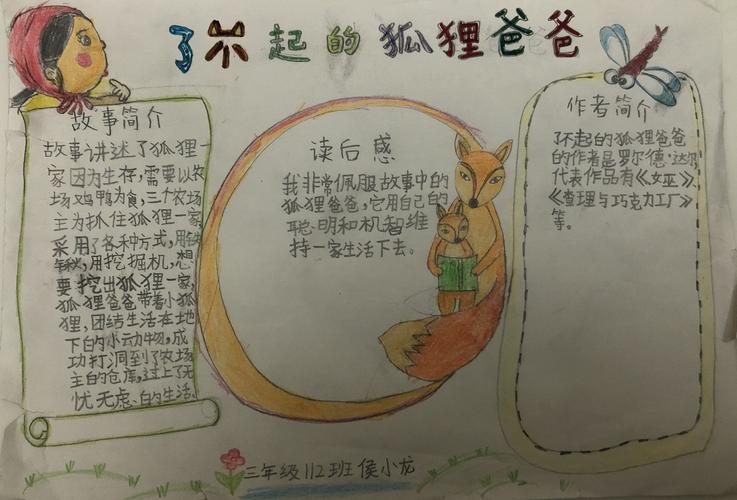 了不起的狐狸爸爸
故事简介
故事讲述了狐狸一
家因为生存,需要以农
场鸡鸭为食,三个农场
主为抓住狐狸一家,
采用了各种方式,用铁
锹,用挖掘机,想
要挖出狐狸一家,
狐狸爸爸带着小狐
狸,团结生活在地
下的小动物,成
功打洞到了农场
主的仓库,过上了无
忧无虑的生活。
读后感
我非常佩服故事中的
狐狸爸爸,它用自己的
聪明和机智维
持一家生活下去。
作者简介
了不起的狐狸爸爸
的作者是罗尔德·达尔,
代表作品有《女巫》、
《查理与巧克力工厂》
等。
三年级112班侯小龙